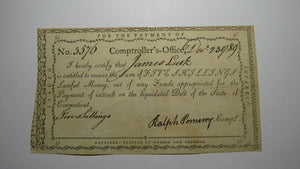 FOR THE PAYMENT OF
No. 3576 Comptroller's-Office, Dec 23 1789
I hereby certify that James Lusk
is entitled to receive the Sum of FIVE SHILLINGS
Lawful Money, out of any Funds appropriated for the
Payment of interest on the liquidated Debt of the State of
Connecticut.
Five Shillings
Ralph Pomeroy, Compt.
HARTFORD: PRINTED BY HUDSON AND GOODWIN.